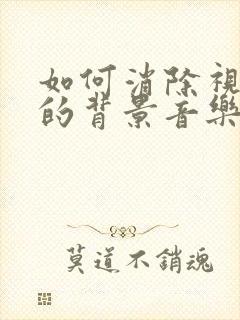 如何消除視
的背景音樂
莫道不銷魂